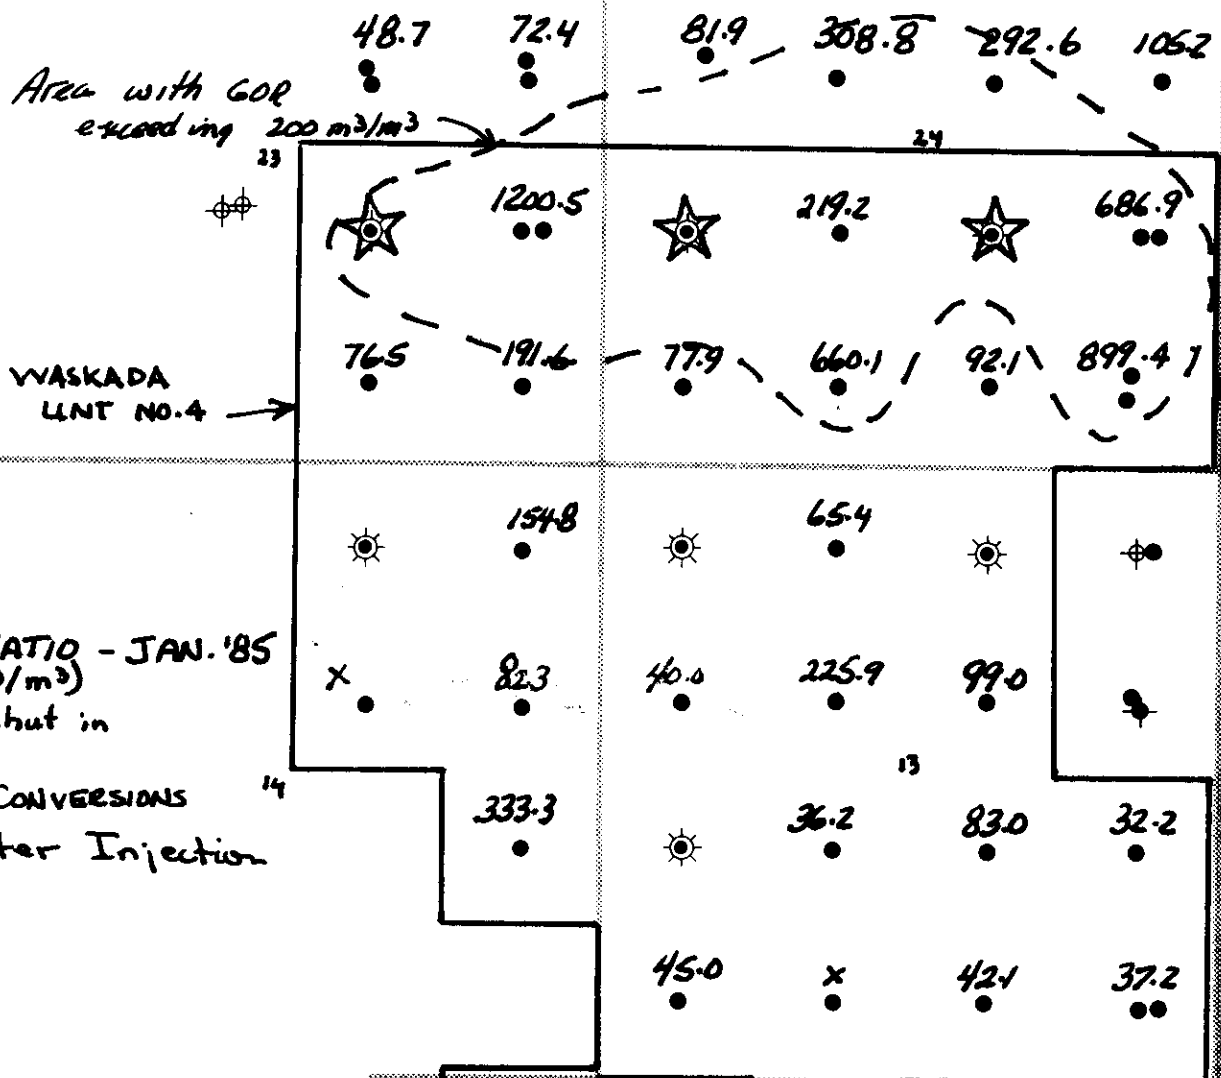 48.7 72.4 81.9 308.8 292.6 105.2
Area with GOR
exceeding 200 m³/m³
23 24
1200.5 219.2 686.9
76.5 191.6 77.9 660.1 92.1 899.4
WASKADA
UNIT NO. 4
154.8 65.4
ATIO - JAN. '85
/m³)
hut in
x 82.3 40.0 225.9 99.0
13
14
CONVERSIONS
ter Injection
333.3 36.2 83.0 32.2
45.0 x 42.1 37.2